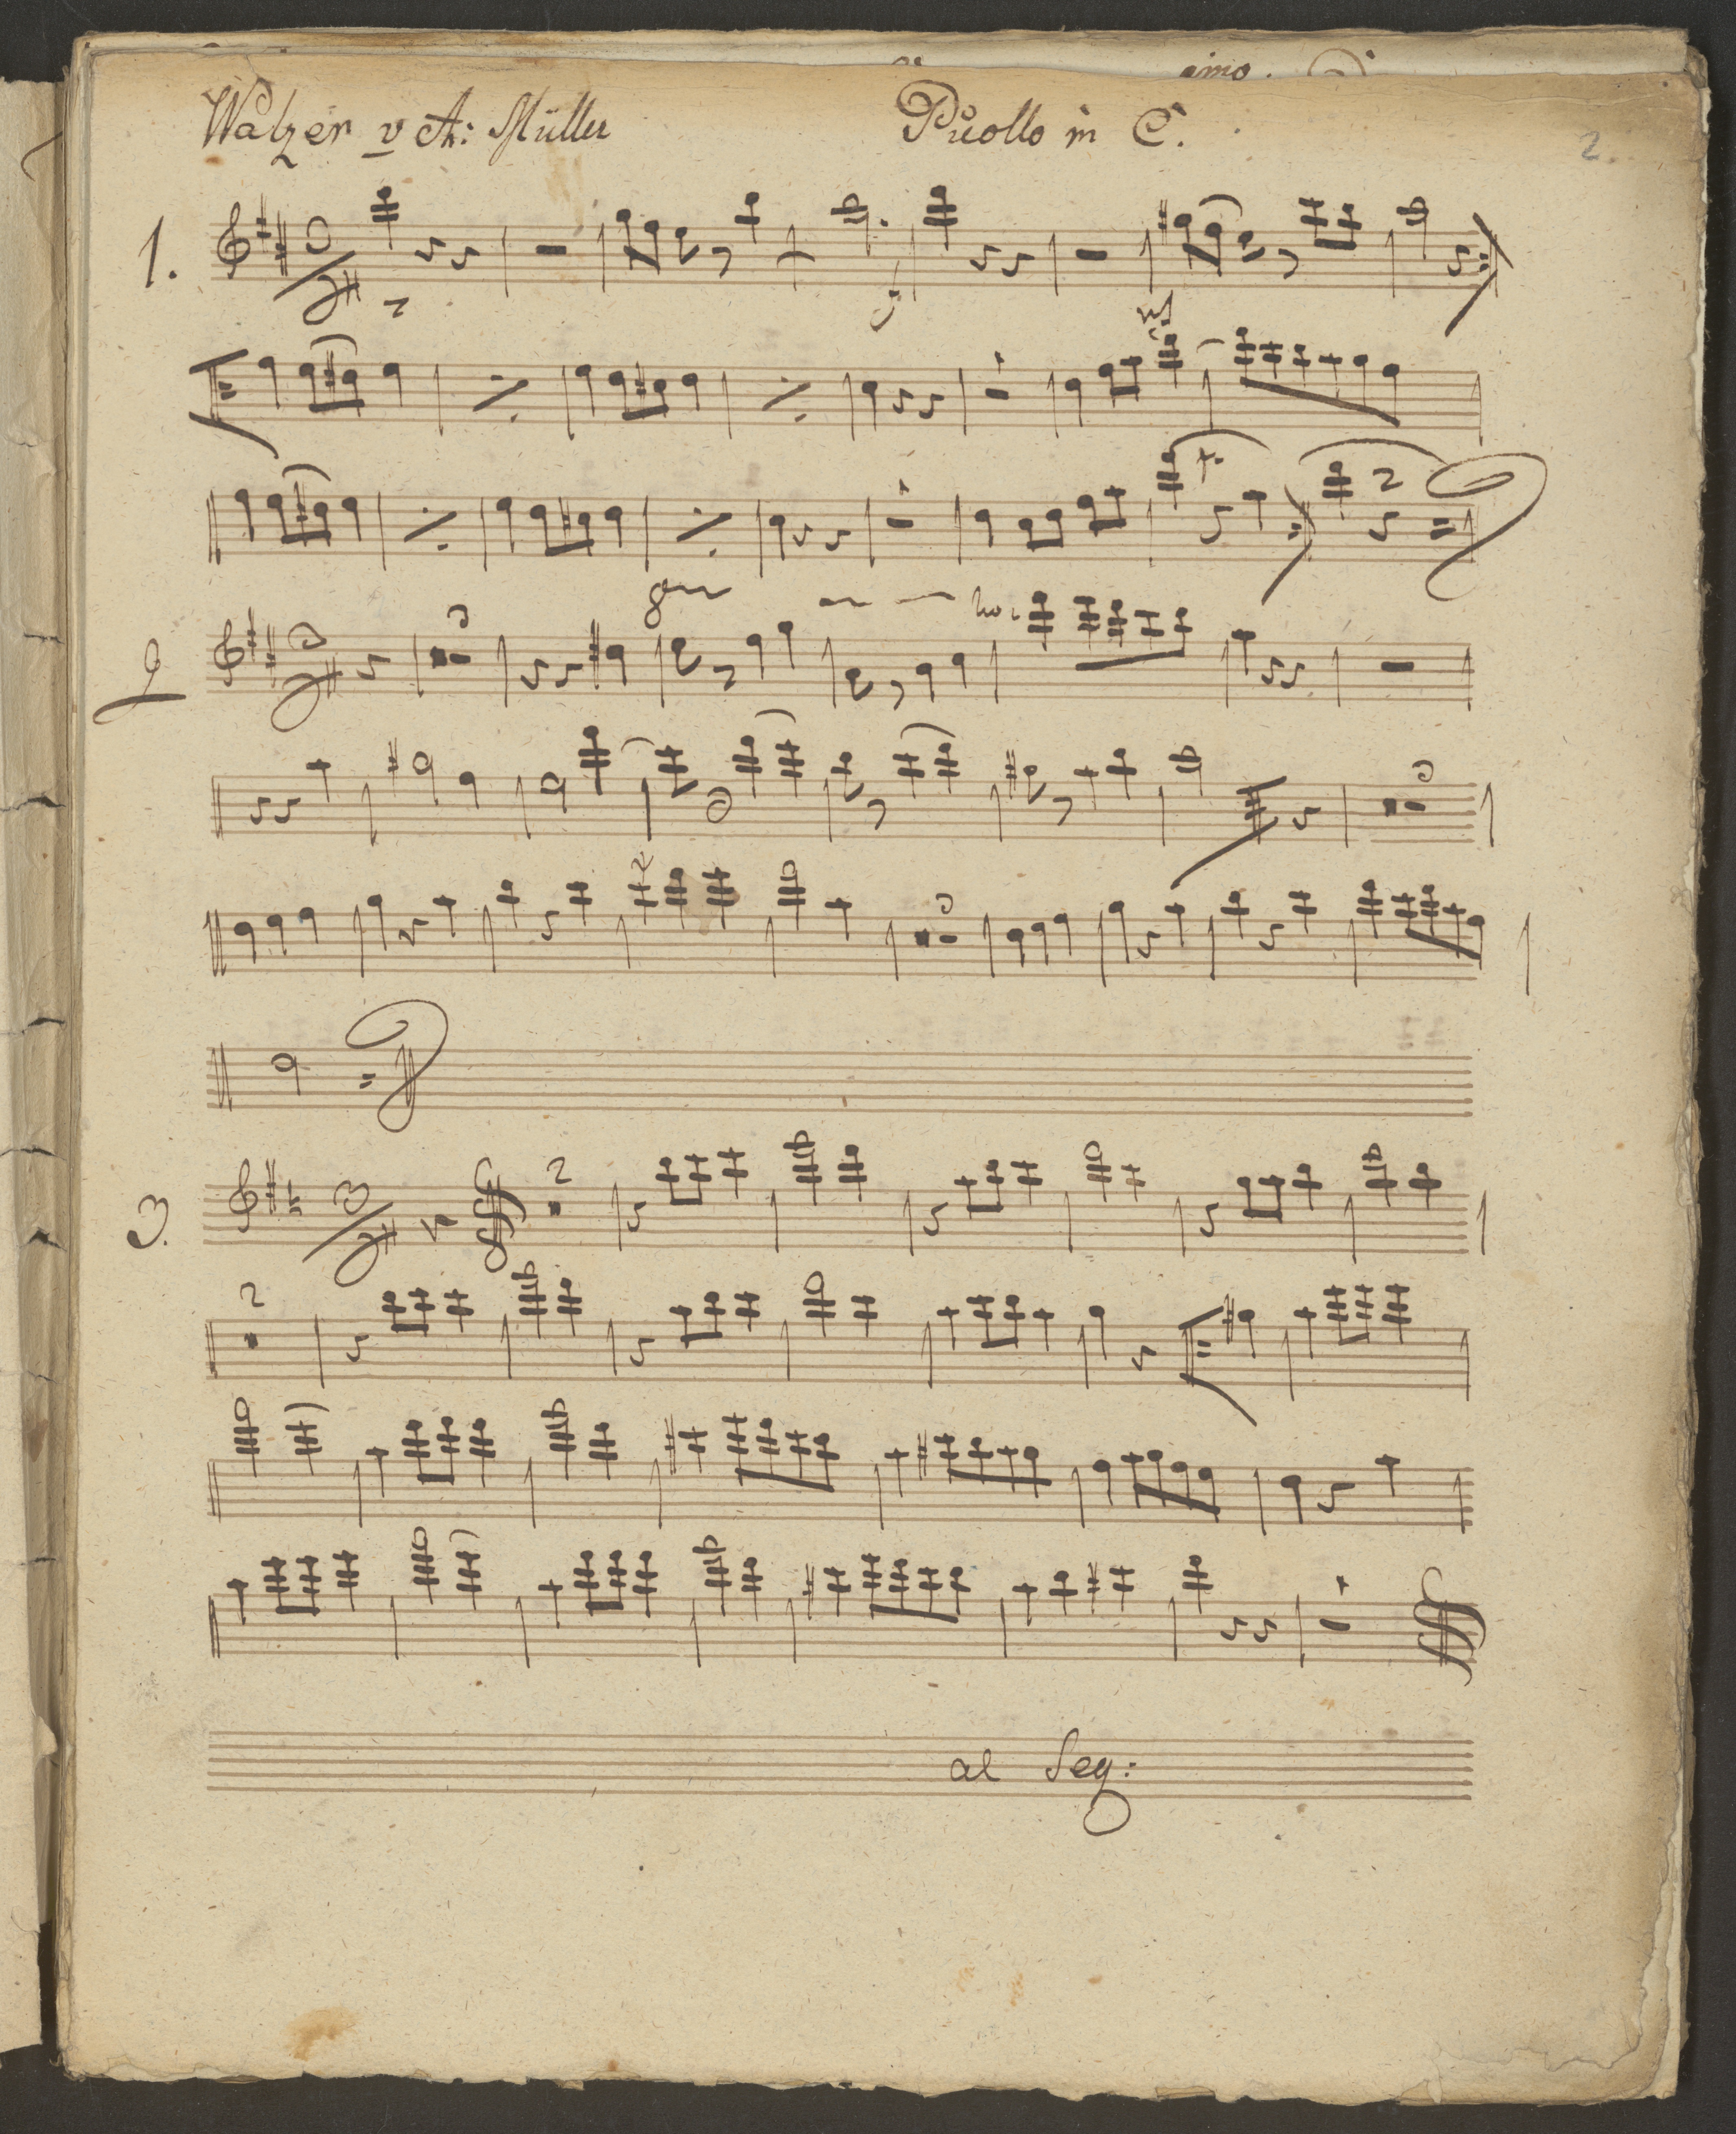 imo.
Walzer v A: Müller Picollo in C.
2.
1.
2
3.
al Seg: